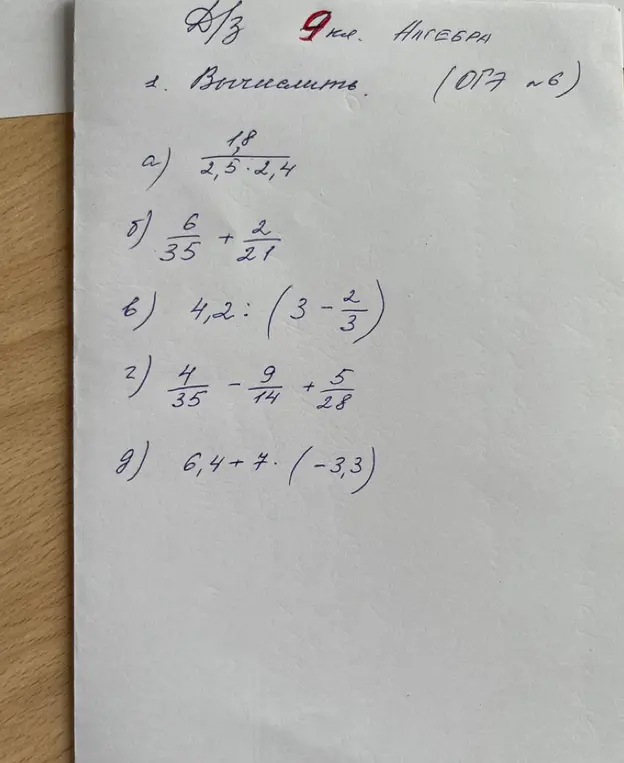 Д/з 9 кл. Алгебра
1. Вычислить. (ОГЭ №6)
а) 1,8 / (2,5 · 2,4)
б) 6/35 + 2/21
в) 4,2 : (3 - 2/3)
г) 4/35 - 9/14 + 5/28
д) 6,4 + 7 · (-3,3)